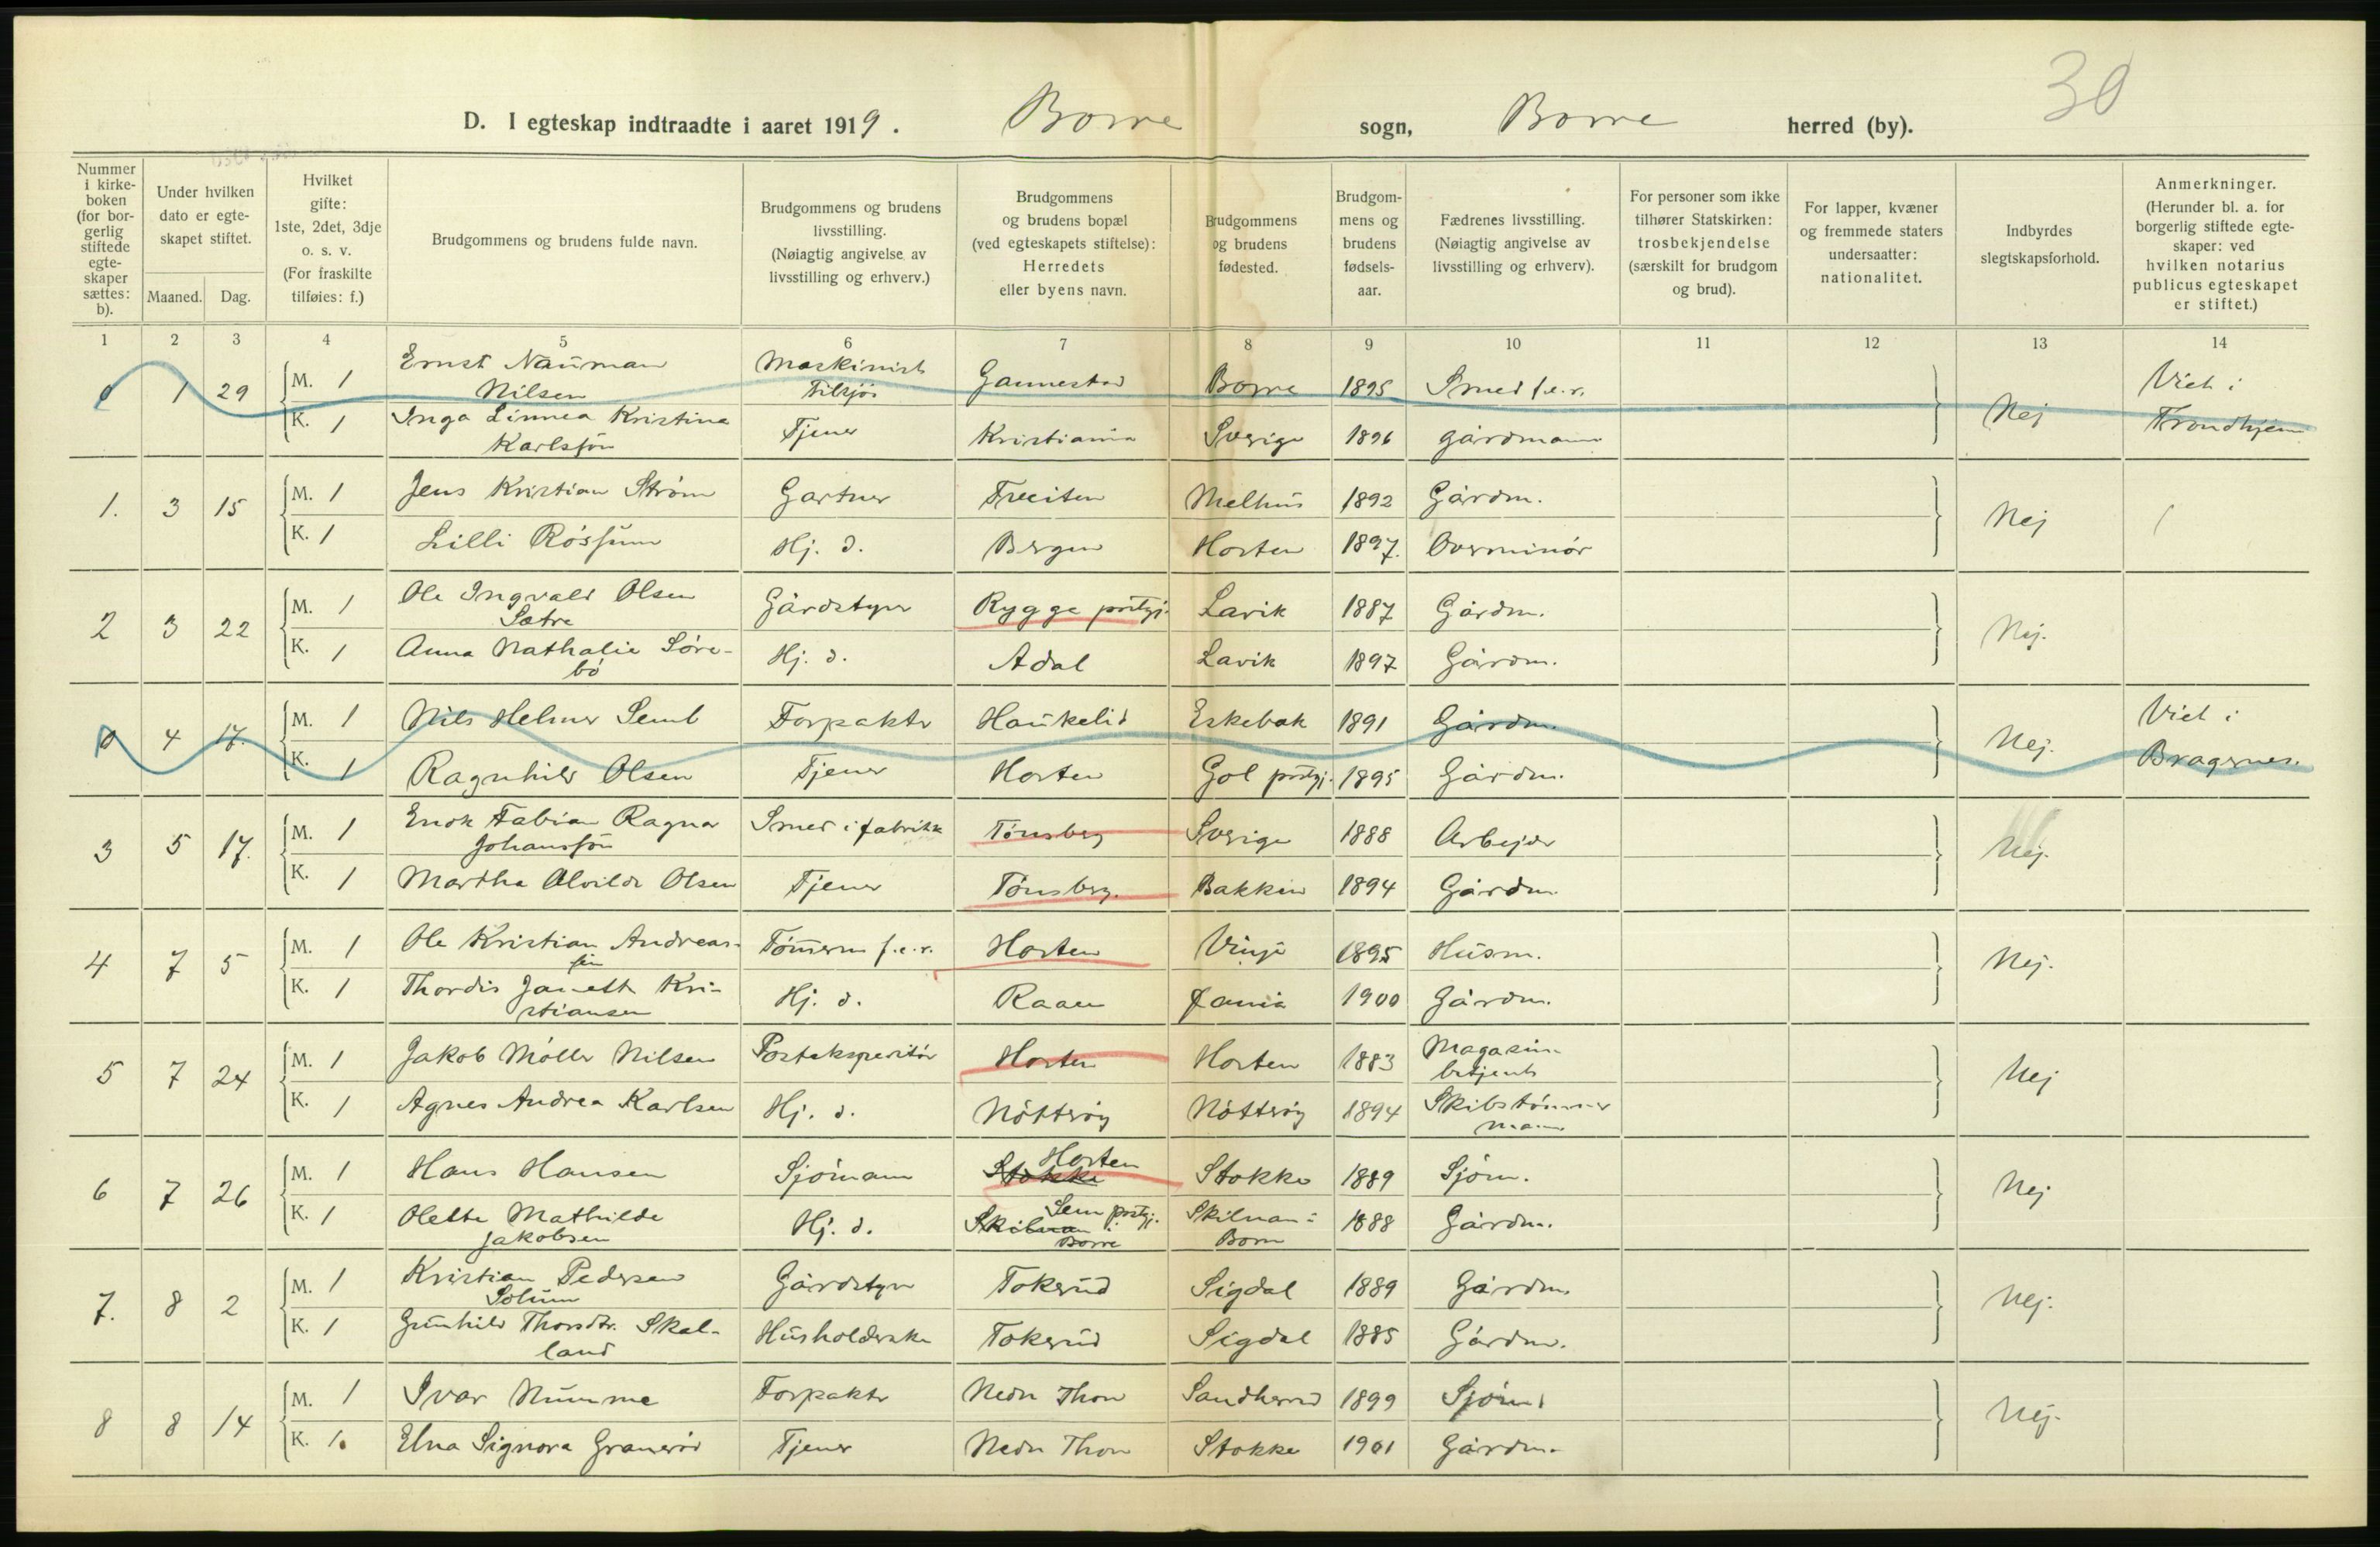 30
D. I egteskap indtraadte i aaret 1919. Borre sogn, Borre herred (by).
Nummer i kirke-boken (for bor-gerlig stiftede egte-skaper sættes: b).
Under hvilken dato er egte-skapet stiftet.
Maaned. Dag.
Hvilket gifte: 1ste, 2det, 3dje o. s. v. (For fraskilte tilføies: f.)
Brudgommens og brudens fulde navn.
Brudgommens og brudens livsstilling. (Nøiagtig angivelse av livsstilling og erhverv.)
Brudgommens og brudens bopæl (ved egteskapets stiftelse): Herredets eller byens navn.
Brudgommens og brudens fødested.
Brudgom-mens og brudens fødsels-aar.
Fædrenes livsstilling. (Nøiagtig angivelse av livsstilling og erhverv).
For personer som ikke tilhører Statskirken: trosbekjendelse (særskilt for brudgom og brud).
For lapper, kvæner og fremmede staters undersaatter: nationalitet.
Indbyrdes slegtskapsforhold.
Anmerkninger. (Herunder bl. a. for borgerlig stiftede egte-skaper: ved hvilken notarius publicus egteskapet er stiftet.)
1 2 3 4 5 6 7 8 9 10 11 12 13 14
0 1 29 M. 1 Ernst Nauman Nilsen Maskinist Tilsjøs Gannestad Borre 1895 Smed f.e.r. Nej Viet i Trondhjem
K. 1 Inga Linnea Kristina Karlsson Tjener Kristiania Sverige 1896 gårdmann
1. 3 15 M. 1 Jens Kristian Strøm Gartner Melhus 1892 Gårdm. Nej
K. 1 Lilli Røssum Hj. d. Bergen Horten 1897. Overminör
2 3 22 M. 1 Ole Ingvald Olsen Sætre Gårdstyr Rygge prstgj. Lavik 1887 Gårdm. Nej.
K. 1 Anna Nathalie Söre-bö Hj. d. Adal Lavik 1897 Gårdm.
0 4 17. M. 1 Nils Helmer Semb Forpakter Haukelid Eskebæk 1891 Gårdm. Nej. Viet i Bragernes.
K. 1 Ragnhild Olsen Tjener Horten Gol prstgj. 1895 Gårdm.
3 5 17. M. 1 Enok Fabian Ragnar Johansson Smed i fabrikk Tönsberg Sverige 1888 Arbejder Nej.
K. 1 Martha Alvilde Olsen Tjener Tönsberg. Bakken 1894 Gårdm.
4 7 5 M. 1 Ole Kristian Andreas-sen Tömmerm f.e.r. Horten Vinje 1895 Husm. Nej.
K. 1 Thordis Janette Kri-stiansen Hj. d. Raaen 1900 Gårdm.
5 7 24 M. 1 Jakob Möller Nilsen Postekspeditör Horten Horten 1883 Magasin-betjent Nej
K. 1 Agnes Andrea Karlsen Hj. d. Nötteröy Nötteröy 1894 Skibstömmermann
6 7 26 M. 1 Hans Hansen Sjömann Stokke Horten Stokke 1889 Sjöm. Nej
K. 1 Olette Mathilde Jakobsen Hj. d. Skilnan i Borre Sem prstgj. Skilnan i Borre 1888 Gårdm.
7. 8 2 M. 1 Kristian Pedersen Solum Gårdstyr Tokerud Sigdal 1889 Gårdm. Nej.
K. 1 Gunhild Thorsdtr. Skal-land Husholderske Tokerud Sigdal 1885 Gårdm.
8 8 14 M. 1 Ivar Numme Forpakter Nedr Thon Sandherred 1899 Sjöm. Nej.
K. 1. Elna Signora Granerød Tjener Nedr Thon Stokke 1901 Gårdm.